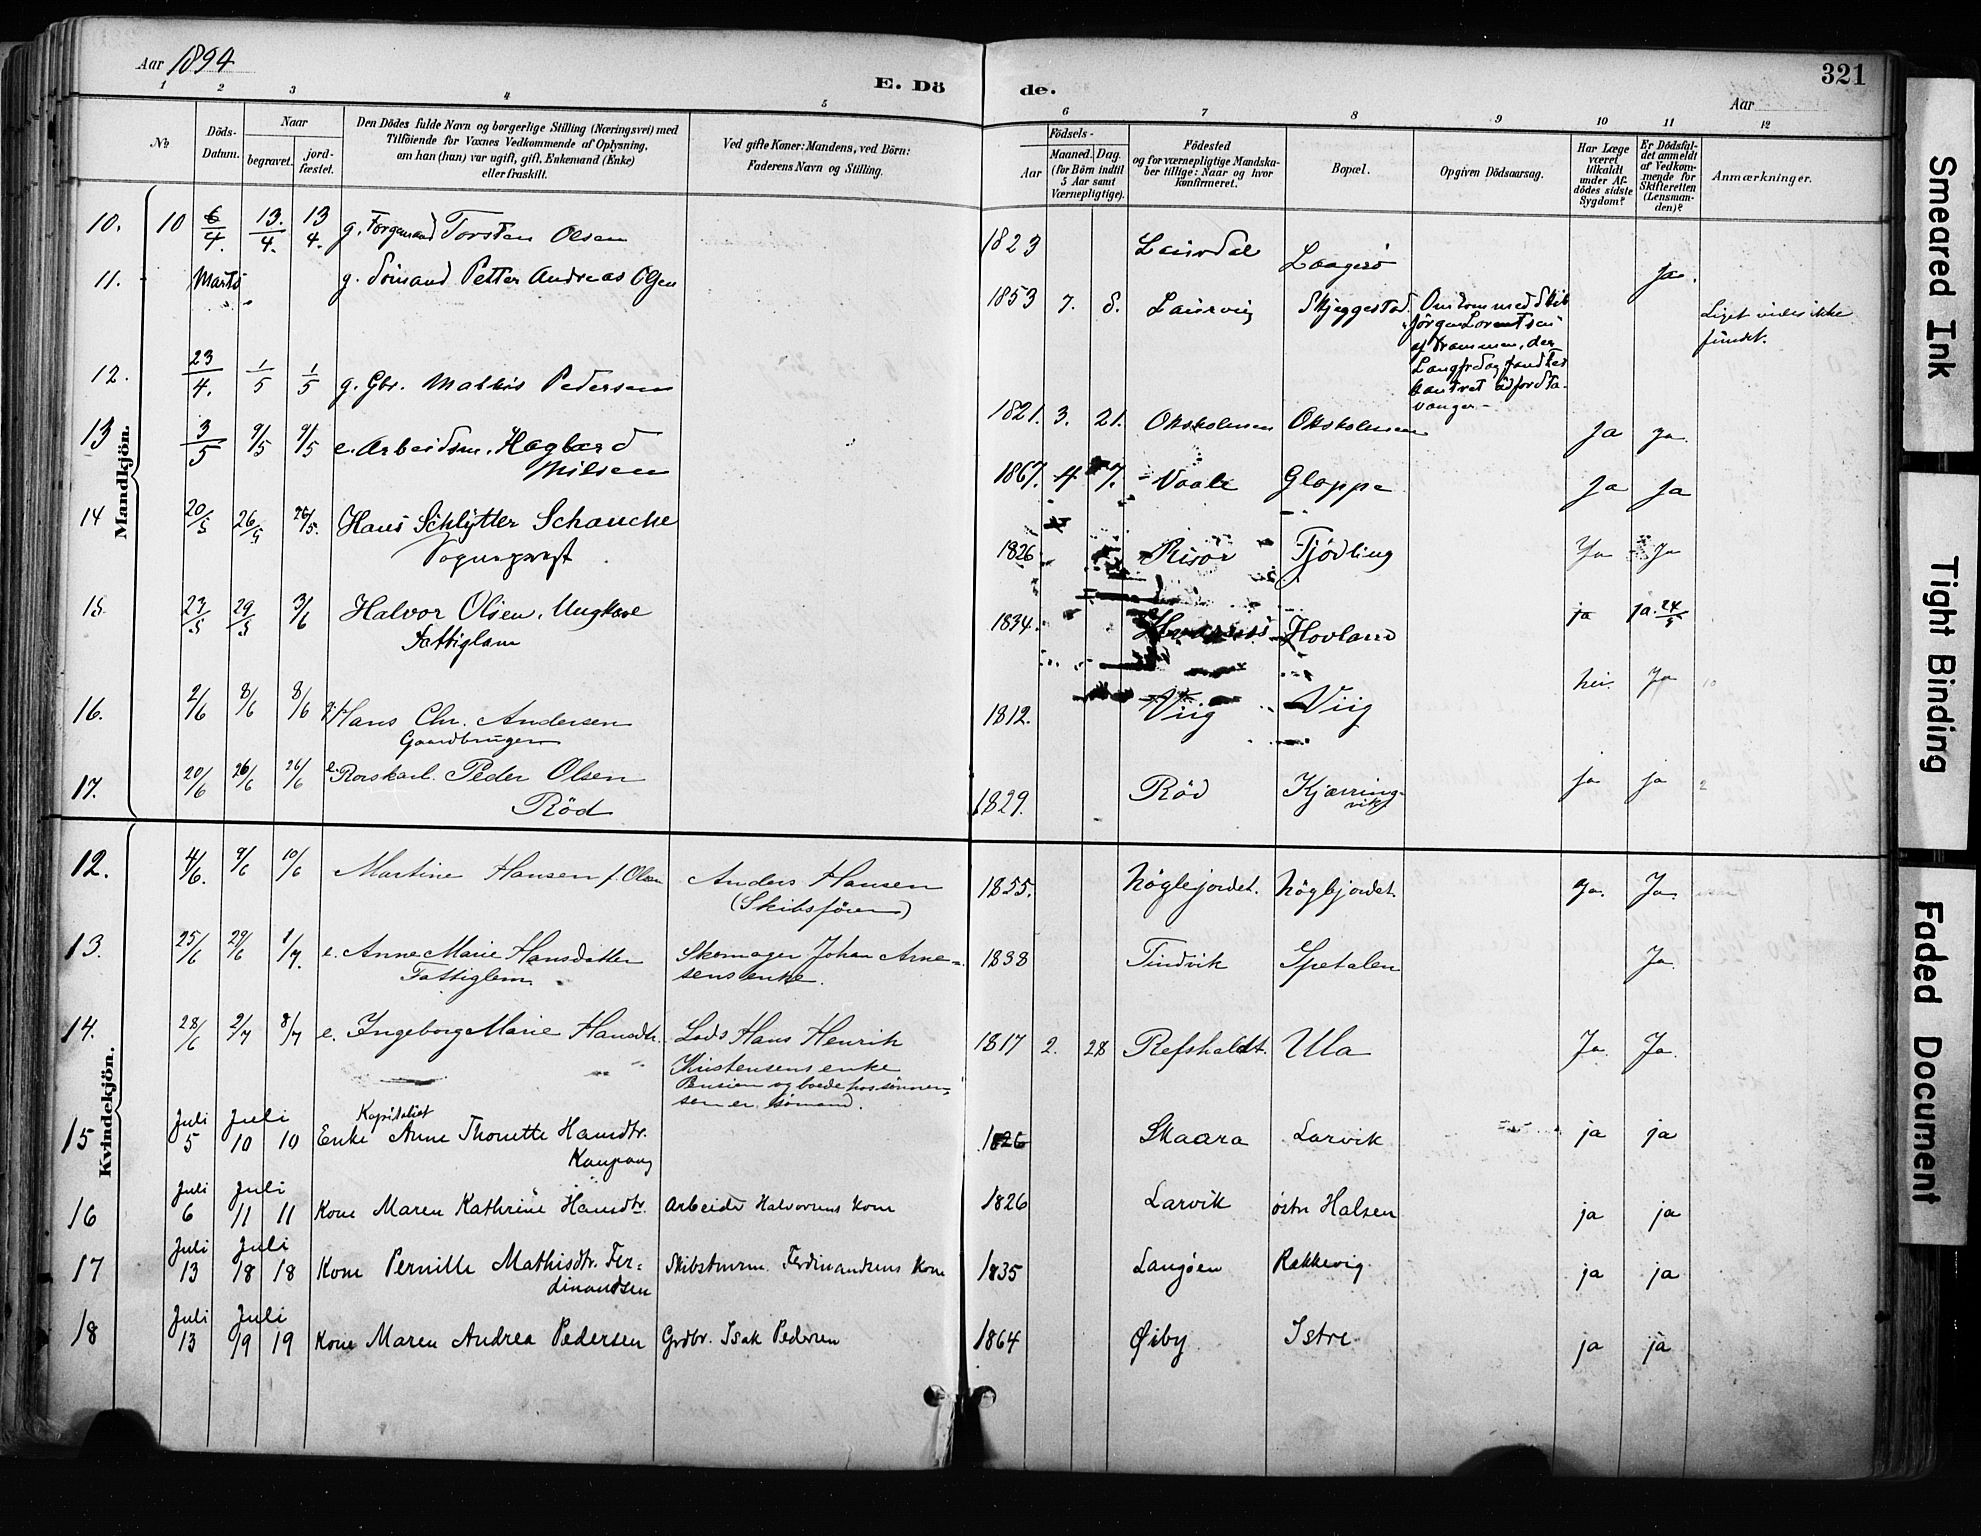 Aar 1894
E. Dö
de.
Aar
321
1 2 3 4 5 6 7 8 9 10 11 12
№
Döds-
Datum.
Naar
begravet.
jord-
fæstet.
Den Dödes fulde Navn og borgerlige Stilling (Næringsvei) med
Tilföiende for Voxnes Vedkommende af Oplysning,
om han (hun) var ugift, gift, Enkemand (Enke)
eller fraskilt.
Ved gifte Koner: Mandens, ved Börn:
Faderens Navn og Stilling.
Födsels-
Aar
Maaned. Dag.
(for Börn indtil
5 Aar samt
Værnepligtige).
Födested
og for værnepligtige Mandska-
ber tillige: Naar og hvor
konfirmeret.
Bopæl.
Opgiven Dödsaarsag.
Har Læge
været
tilkaldt
under Af-
dödes sidste
Sygdom?
Er Dödsfal-
det anmeldt
af Vedkom-
mende for
Skifteretten
(Lensman-
den)?
Anmærkninger.
Mandkjön.
10. 10 6/4. 13./4. 13/4. g. Torsten Olsen 1823 Laurdal Laagerö Ja.
11. Marts g. Sömand Petter Andreas Olsen 1853 7. 8. Laurvig Skjeggestad. Omkom med Skib
Jörgen Lorentsen
af Drammen, der
Langfredag fandtes
kantret udfor Sta-
vanger
Liget vides ikke
fundet.
12. 23/4. 1/5 1/5 g. Gbr. Mathis Pedersen 1821. 3. 21. Oksholmen Oksholmen Ja ja
13 3/5 9/5 9/5 e. Arbeidsm. Hagbard
Nilsen 1867. 4 7. Vaale Gloppe Ja Ja
14 20/5 26/5 26/5. Hans Schlytter Schanche
1826 Risör Tjödling Ja Ja
15. 23/5 29/5 3/6 Halvor Olsen, Ungkarl
Fattiglem 1834. Hovland ja ja. 24/5
16. 2/6 8/6 8/6 g. Hans Chr. Andersen
Gaardbruger 1812. Viig Viig nei. Ja
17. 20/6 26/6 26/6 e. Rorskarl. Peder Olsen
Röd 1829. Röd Kjærring-
vik ja ja
Kvindekjön.
12. 4/6. 9/6 10/6 Martine Hansen f. Olsen Anders Hansen
(Skibsförer) 1855. Nöglejordet. Nöglejordet. Ja. Ja.
13. 25/6 29/6 1/7. e. Anne Marie Hansdatter
Fattiglem Skomager Johan Arne-
sens enke. 1838 Tindvik Spetalen Ja.
14. 28/6 2/7 8/7 e. Ingeborg Marie Hansdtr. Lods Hans Henrik
Kristensens enke
Pension og boede hos sönnen,
som er sömand. 1817 2. 28 Refsholdt. Ula Ja. Ja.
15 Juli 5 Juli 10 10 Enke Kapitalist Anne Thonette Hansdtr.
Kaupang 1826 Skaara Larvik ja ja
16 Juli 6 Juli 11 11 Kone Maren Kathrine Hansdtr. Arbeider Halvorsens Kone 1826 Larvik östre Halsen ja ja
17 Juli 13 Juli 18 18 Kone Pernille Mathisdtr. Fer-
dinandsen Skibstmrm. Ferdinandsens Kone 1835 Langöen Rakkevig ja ja
18 Juli 13 Juli 19 19 Kone Maren Andrea Pedersen Grdbr. Isak Pedersen 1864 Øiby Istre ja ja
Smeared Ink
Tight Binding
Faded Document